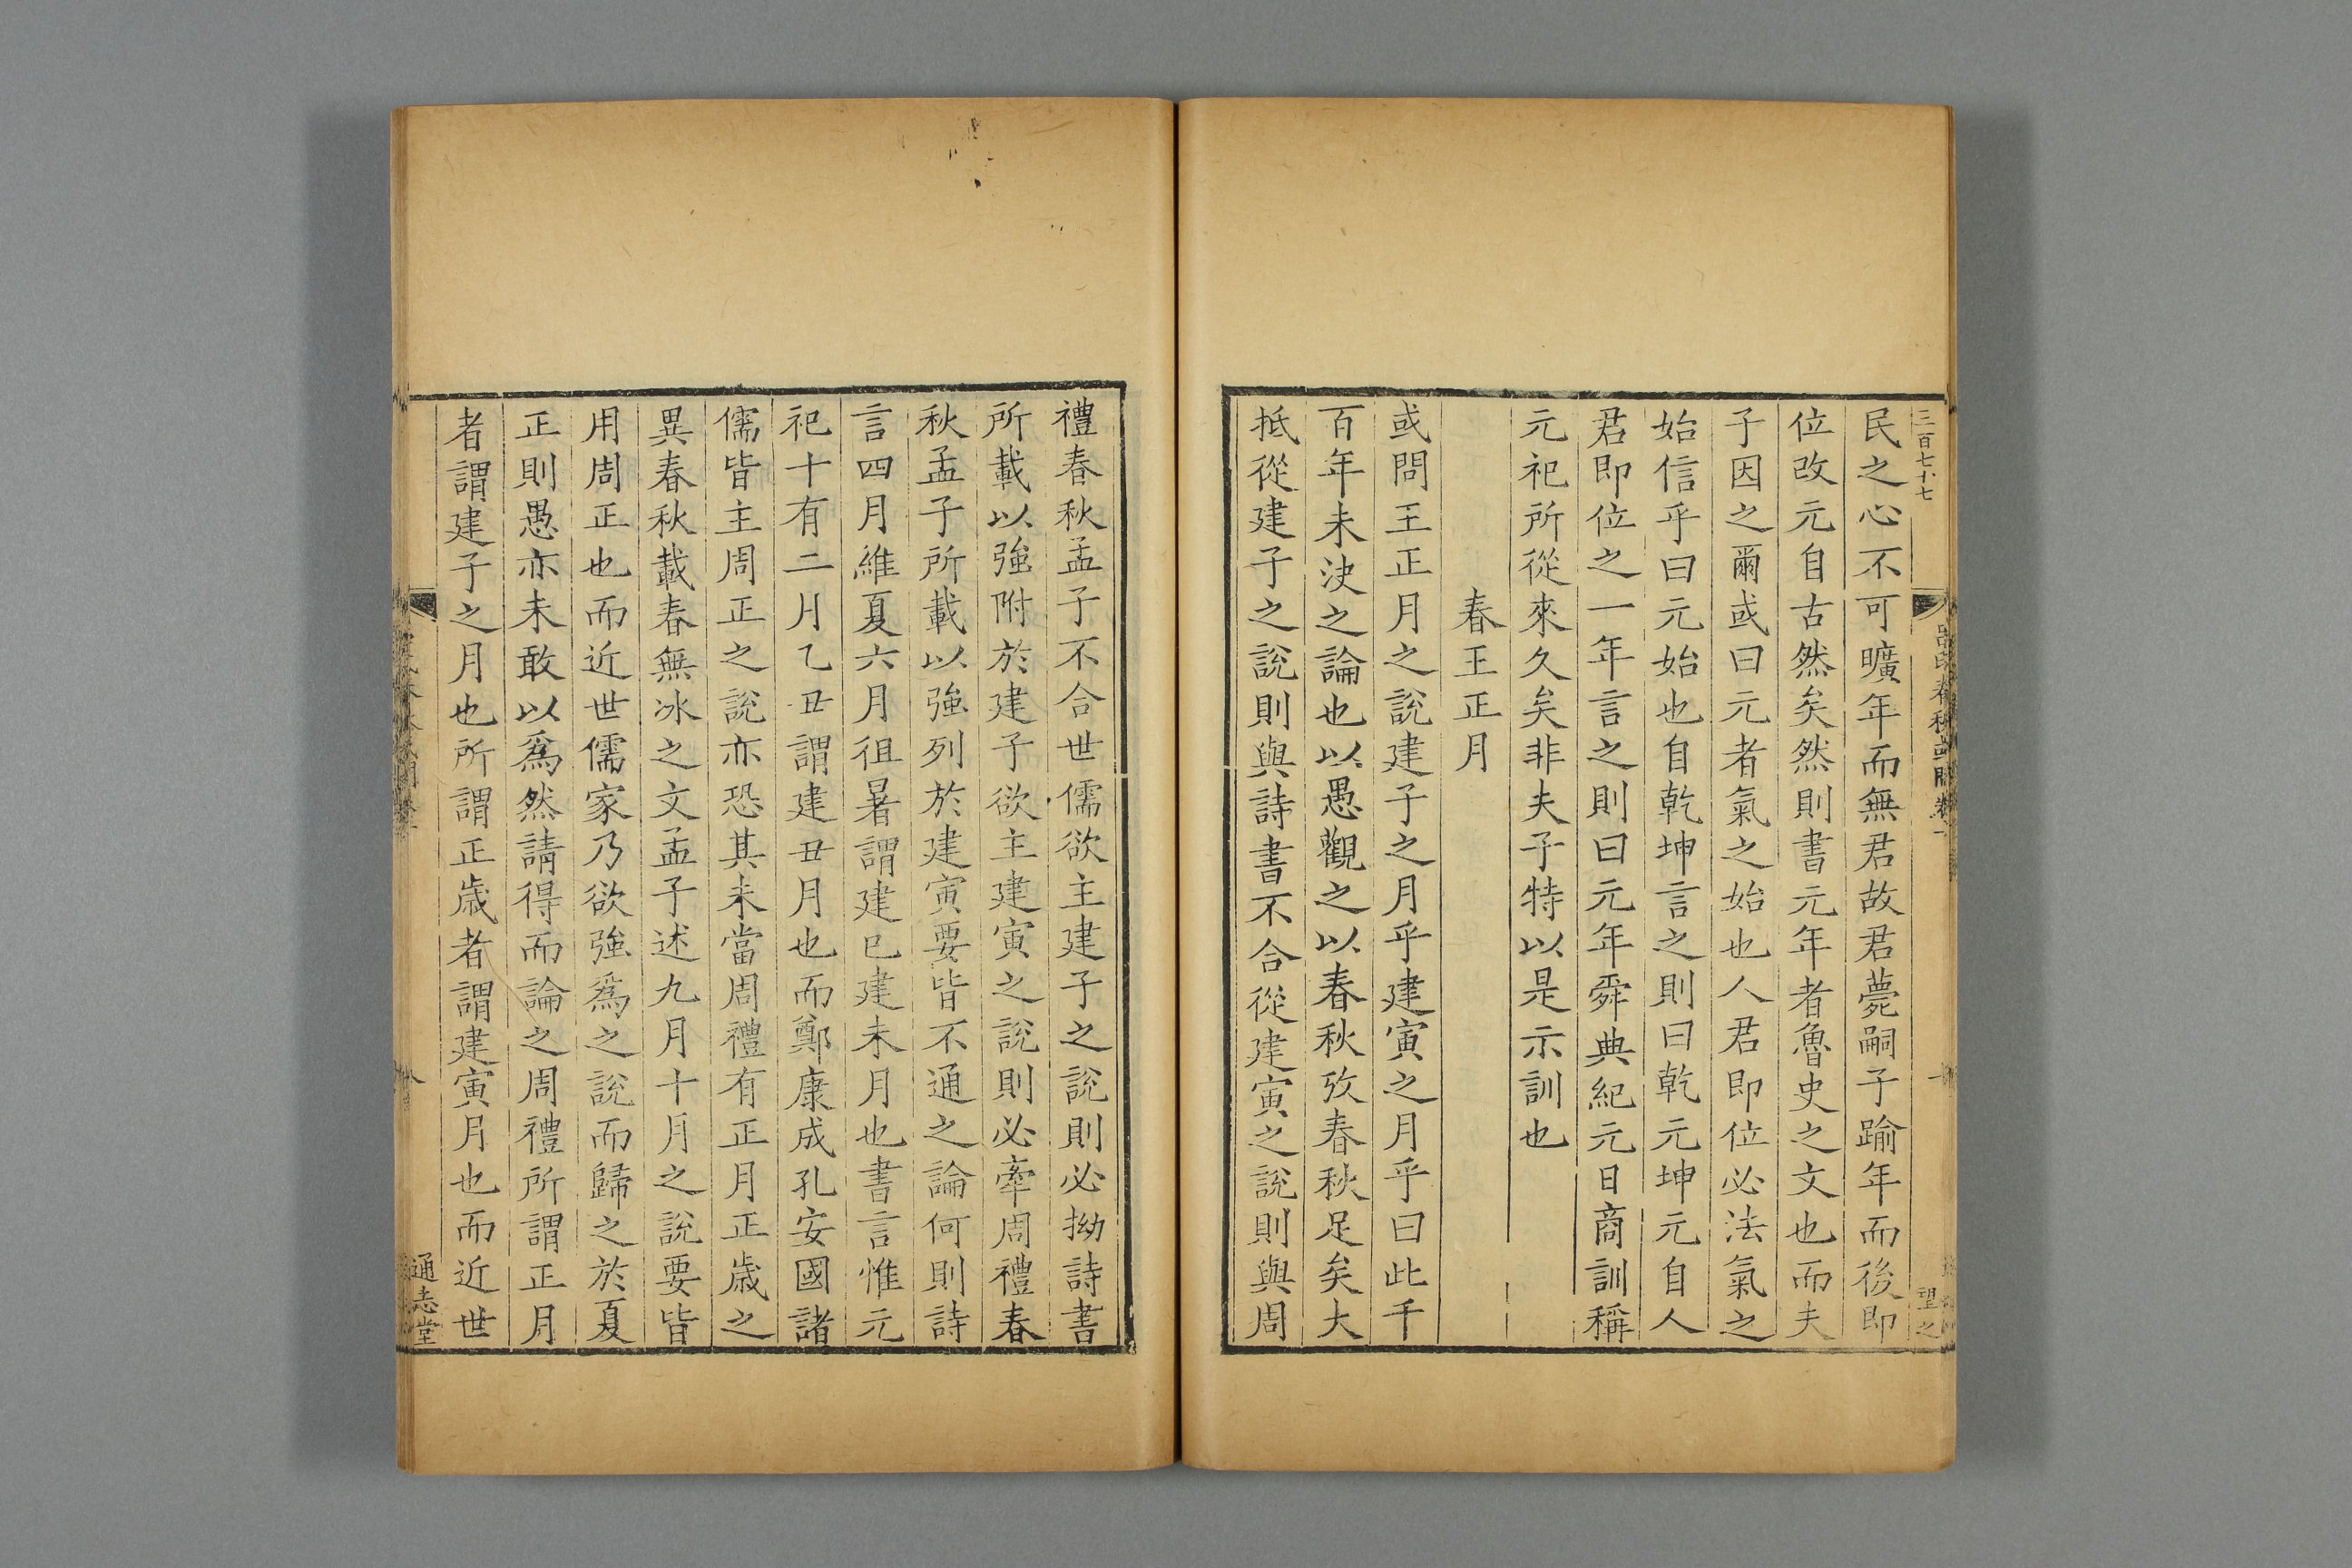 三百七十七
民之心不可曠年而無君故君薨嗣子踰年而後即
位改元自古然矣然則書元年者魯史之文也而夫
子因之爾或曰元者氣之始也人君即位必法氣之
始信乎曰元始也自乾坤言之則曰乾元坤元自人
君即位之一年言之則曰元年舜典紀元日商訓稱
元祀所從來久矣非夫子特以是示訓也
春王正月
或問王正月之說建子之月乎建寅之月乎曰此千
百年未決之論也以愚觀之以春秋攷春秋足矣大
抵從建子之說則與詩書不合從建寅之說則與周
禮春秋孟子不合世儒欲主建子之說則必拗詩書
所載以強附於建子欲主建寅之說則必牽周禮春
秋孟子所載以強列於建寅要皆不通之論何則詩
言四月維夏六月徂暑謂建巳建未月也書言惟元
祀十有二月乙丑謂建丑月也而鄭康成孔安國諸
儒皆主周正之說亦恐其未當周禮有正月正歲之
異春秋載春無冰之文孟子述九月十月之說要皆
用周正也而近世儒家乃欲強爲之說而歸之於夏
正則愚亦未敢以爲然請得而論之周禮所謂正月
者謂建子之月也所謂正歲者謂建寅月也而近世
通志堂